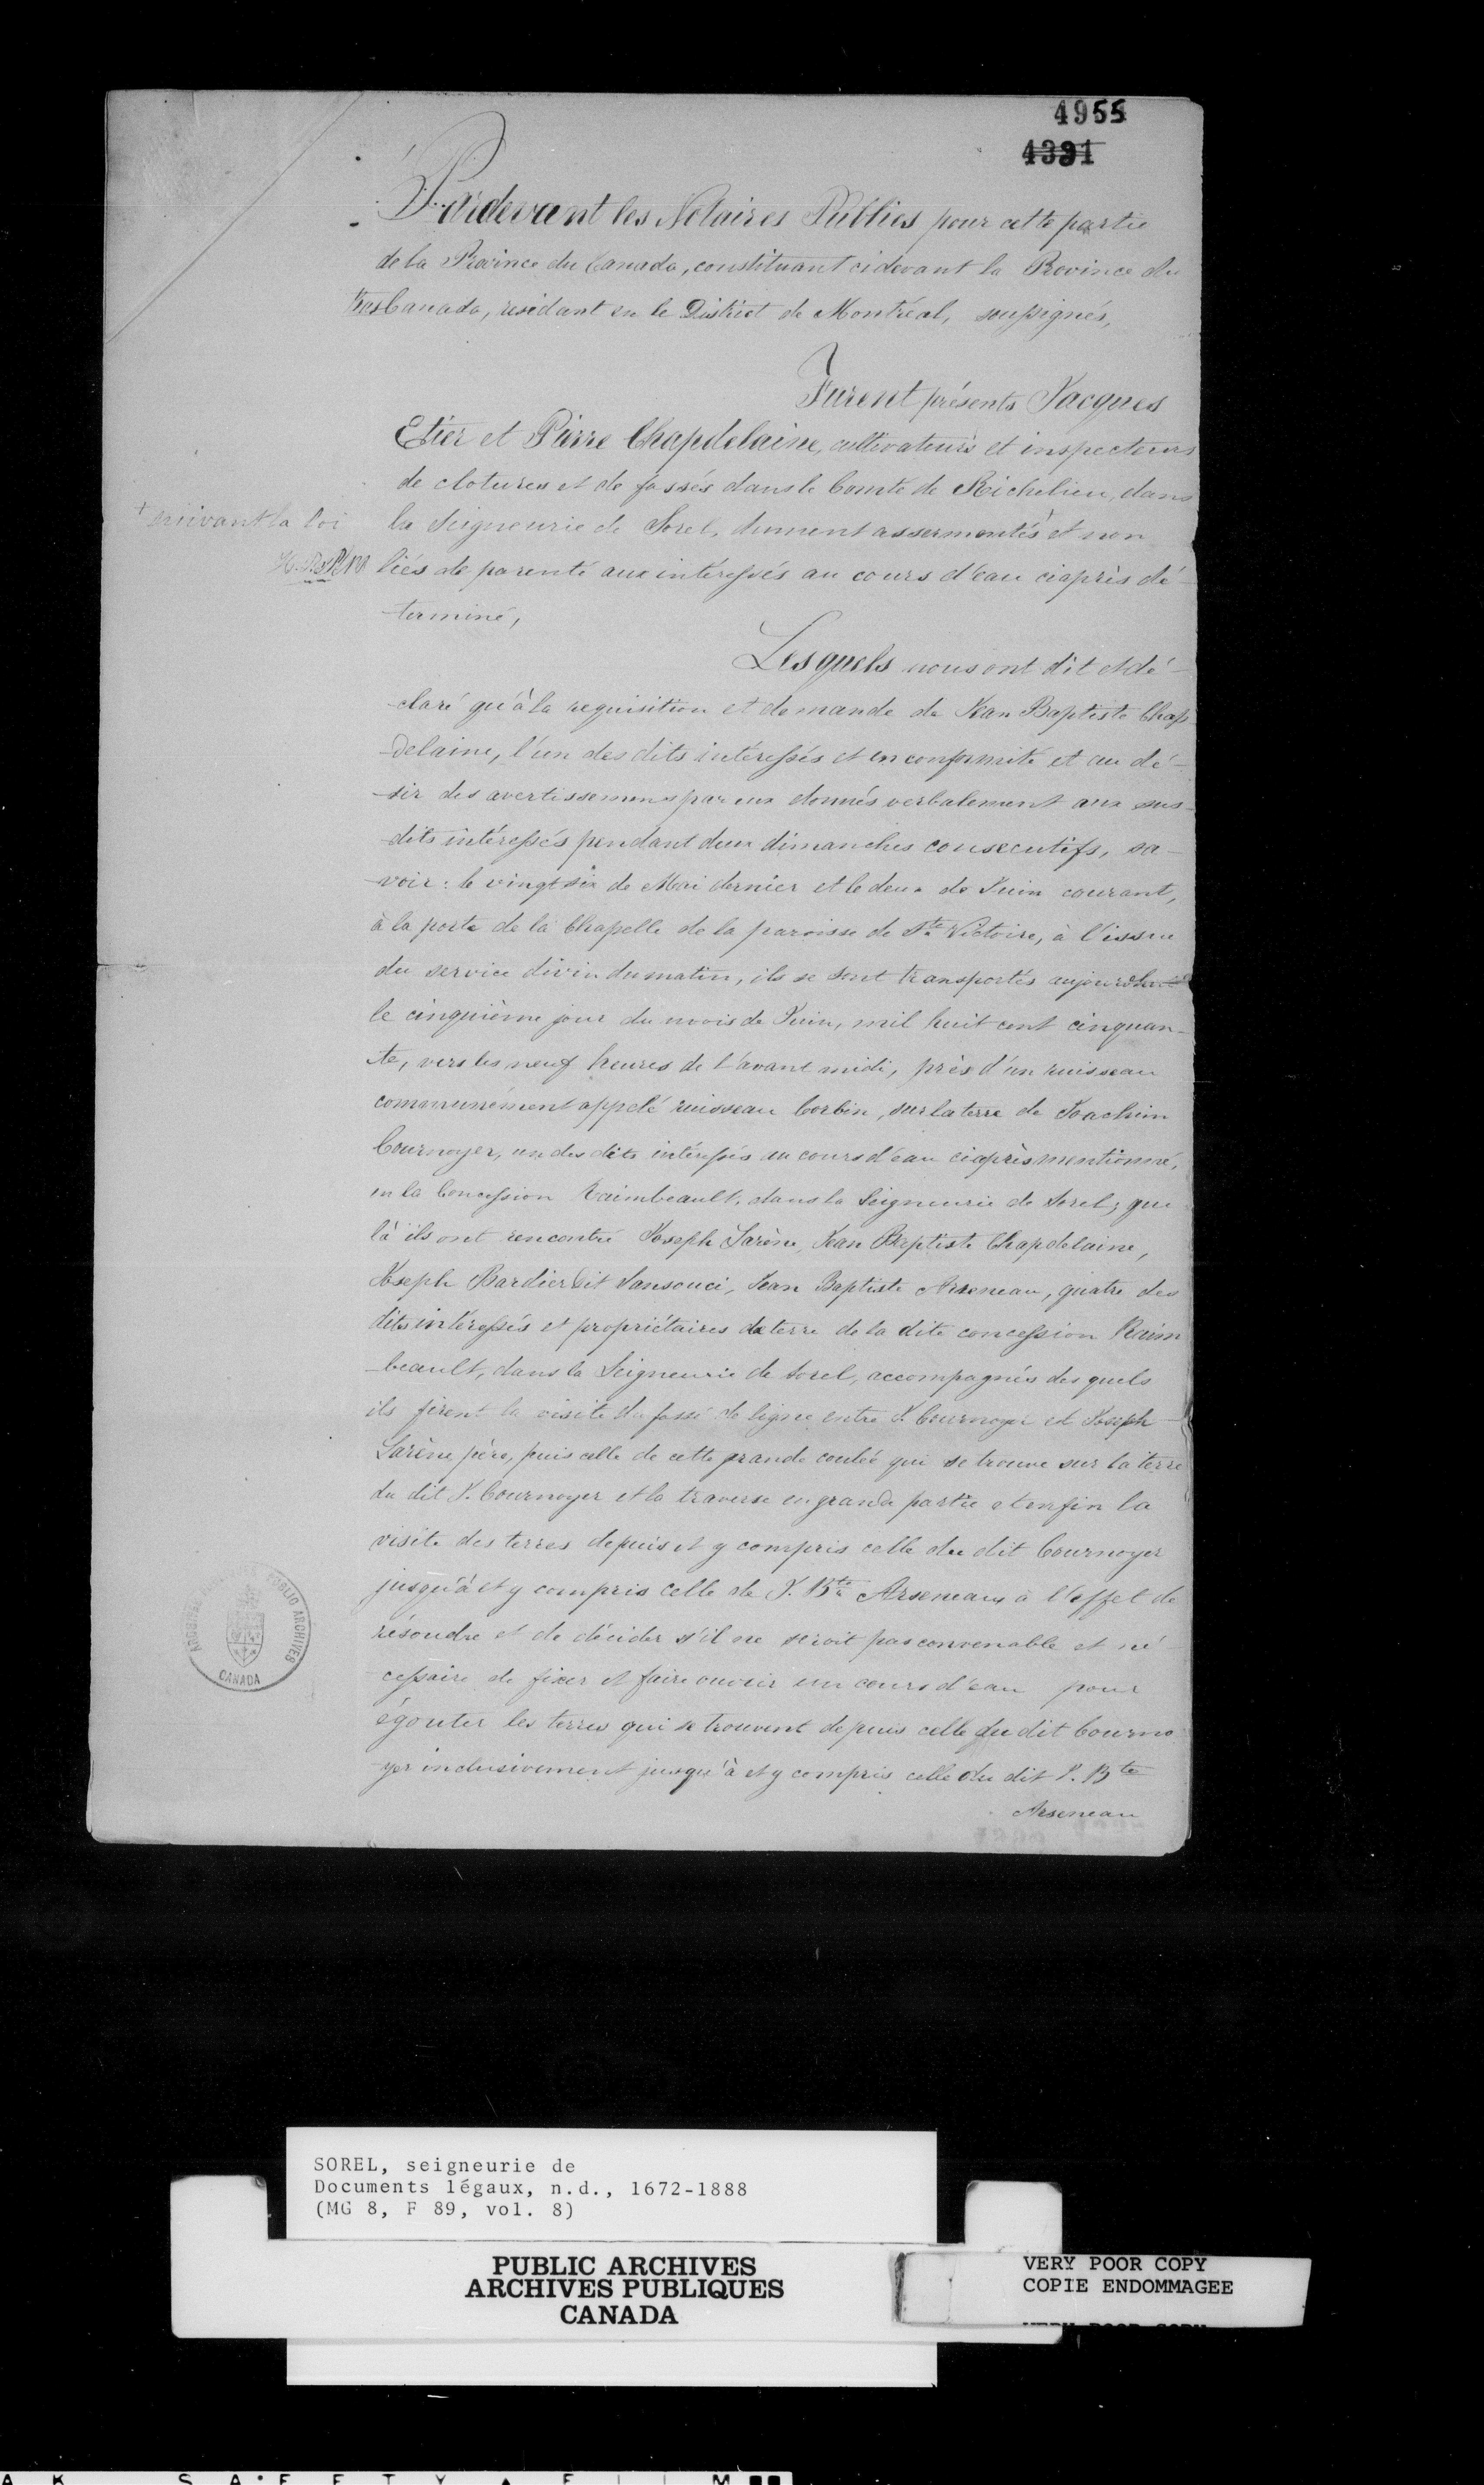 4955
4391
Pardevant les Notaires Publics pour cette partie
de la Province du Canada, constituant cidevant la Province du
Bas Canada, residant en le District de Montréal, soussignés,
Furent présents Jacques
Etier et Pierre Chapdelaine, cultivateurs et inspecteurs
de clotures et de fossés dans le Comté de Richelieu, dans
+ suivant la loi
la Seigneurie de Sorel, dument assermentés + et non
liés de parenté aux intéressés au cours d'eau ciaprès dé-
-terminé,
Lesquels nous ont dit et dé-
-claré qu'à la requisition et demande de Jean Baptiste Chap-
-delaine, l'un des dits intéressés et en conformité et au dé-
-sir des avertissemens par eux donnés verbalement aux sus-
-dits intéressés pendant deux dimanches consecutifs, sa-
-voir: le vingt six de Mai dernier et le deux de Juin courant,
à la porte de la Chapelle de la paroisse de Ste Victoire, à l'issue
du service divin du matin, ils se sont transportés aujourdhui
le cinquième jour du mois de Juin, mil huit cent cinquan-
-te, vers les neuf heures de l'avant midi, près d'un ruisseau
communément appelé ruisseau Corbin, sur la terre de Joachim
Cournoyer, un des dits intéressés au cours d'eau ciaprès mentionné,
en la Concession Raimbeault, dans la Seigneurie de Sorel; que
là ils ont rencontré Joseph Larène, Jean Baptiste Chapdelaine,
Joseph Bardier dit Sansouci, Jean Baptiste Arseneau, quatre des
dits intéressés et propriétaires de terre de la dite concession Raim
-beault, dans la Seigneurie de Sorel, accompagnés des quels
ils firent la visite du fossé de ligne entre J. Cournoyer et Joseph
Larène père, puis celle de cette grande coulée qui se trouve sur la terre
du dit J. Cournoyer et la traverse en grande partie et enfin la
visite des terres depuis et y compris celle du dit Cournoyer
jusqu'à et y compris celle de J. Bte Arseneau à l'effet de
résoudre et de décider s'il ne seroit pas convenable et né-
-cessaire de fixer et faire ouvrir un cours d'eau pour
égouter les terres qui se trouvent depuis celle du dit Courno
-yer inclusivement jusqu'à et y compris celle du dit J. Bte
Arseneau
PUBLIC ARCHIVES
CANADA
SOREL, seigneurie de
Documents légaux, n.d., 1672-1888
(MG 8, F 89, vol. 8)
PUBLIC ARCHIVES
ARCHIVES PUBLIQUES
CANADA
VERY POOR COPY
COPIE ENDOMMAGEE
VERY POOR COPY